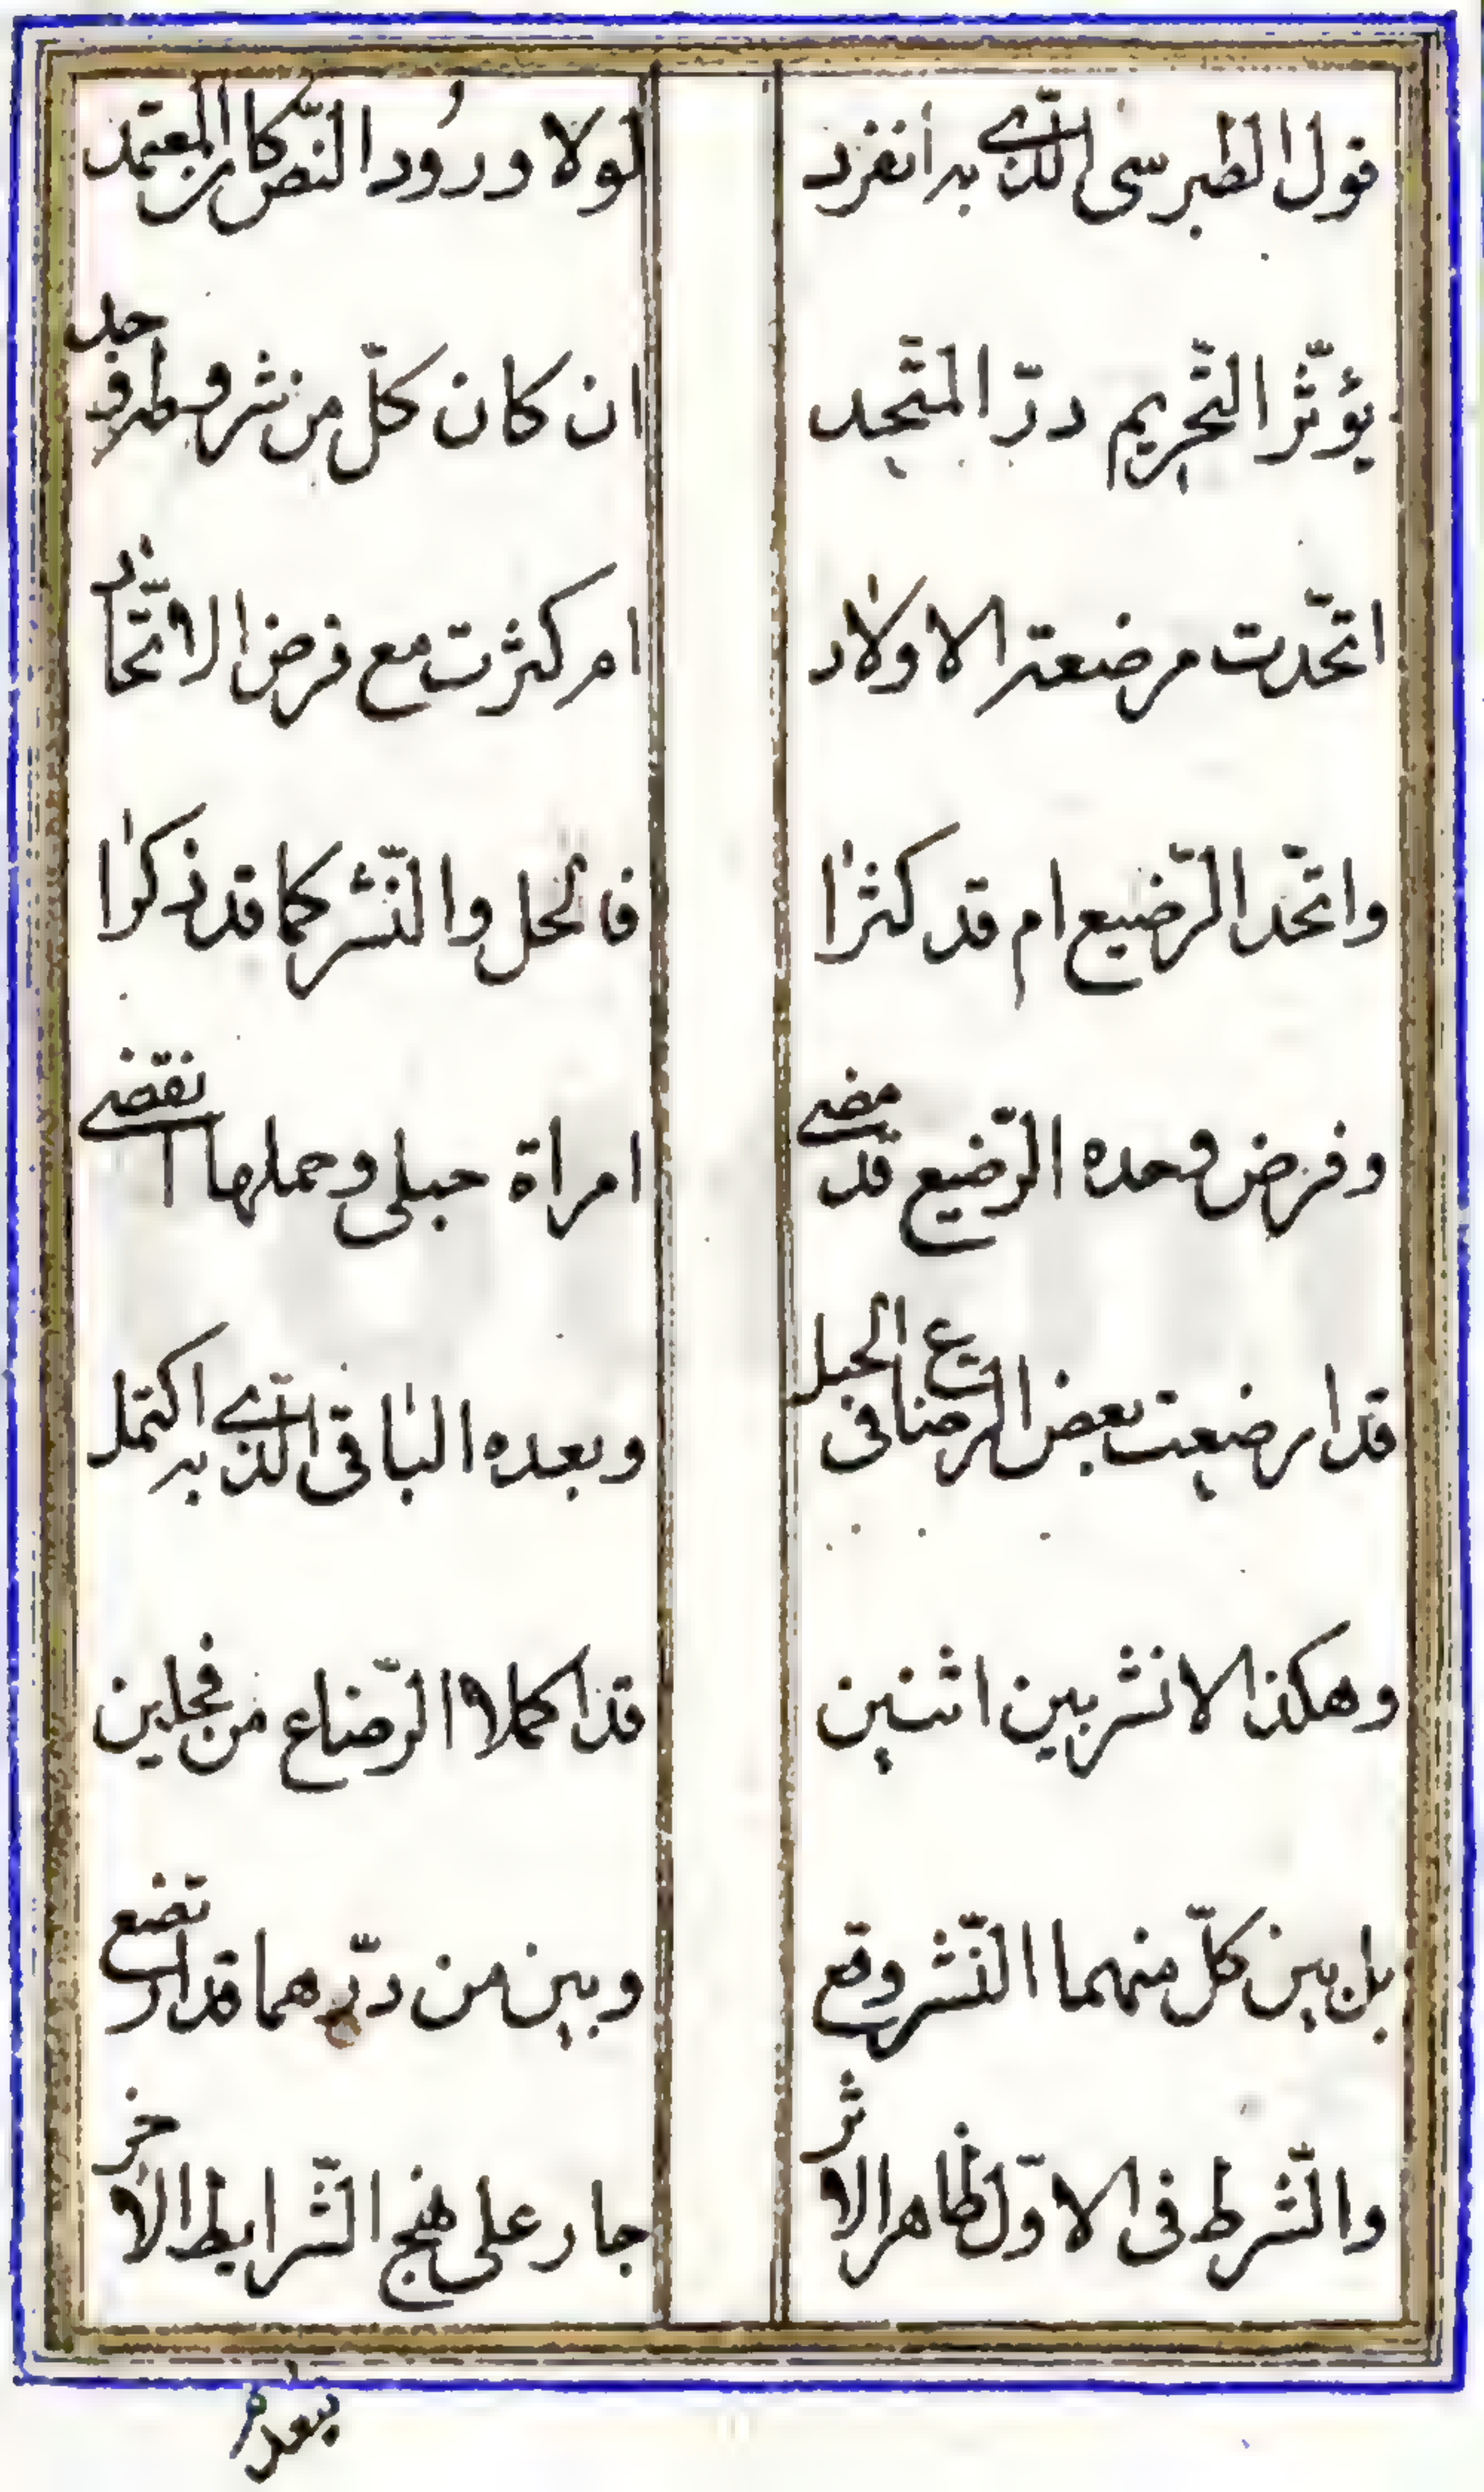 قول الطبرسى الذّے به انفرد لولا ورود النّص كان المعتمد
يؤثّر التّحريم درّ المتّحد ان كان كلّ من شروطه وجد
اتّحدت مرضعة الاولاد ام كثرت مع فرض الاتّحاد
واتّحد الرّضيع ام قد كثرا فالحل والنّشر كما قد ذكرا
وفرض وحده الرّضيع قد مضے امراة حبلى وحملها انقضے
قد ارضعت بعض الرضاع فى الحبل وبعده الباقى الذّے به اكتمل
وهكذا لا نشر بين اثنين قد اكملا الرّضاع من فحلين
بل بين كلّ منهما النّشر وقع وبين من درّهما قد ارتضع
والشّرط فى الاوّل ظاهر الاثر جار على نهج الشّرايط الاخر
بعد